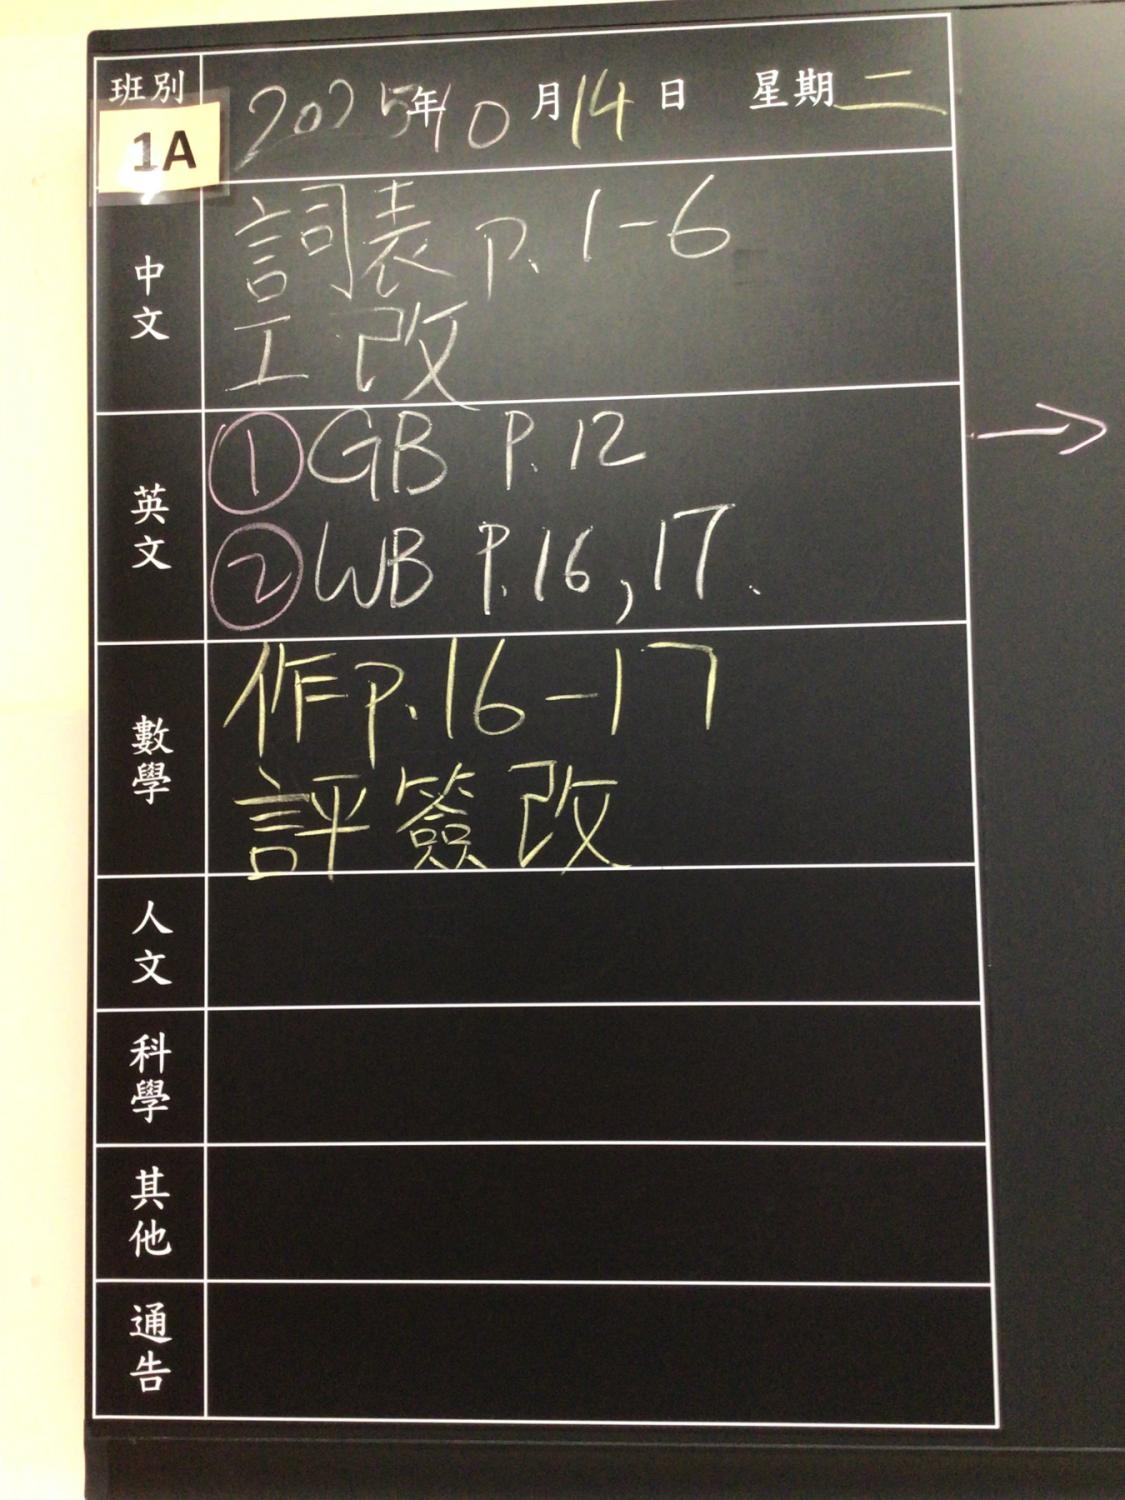 班別 1A 2025年10月14日 星期二
中文
詞表 P. 1-6
工改
英文
① GB P.12
② WB P.16,17.
數學
作P.16-17
評簽改
人文
科學
其他
通告